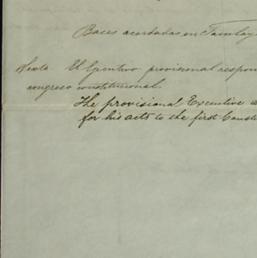 Bases acordadas en Tacubay
Sexta El Ejecutivo provisional respon
congreso constitucional.
The provisional Executive a
for his acts to the first Const